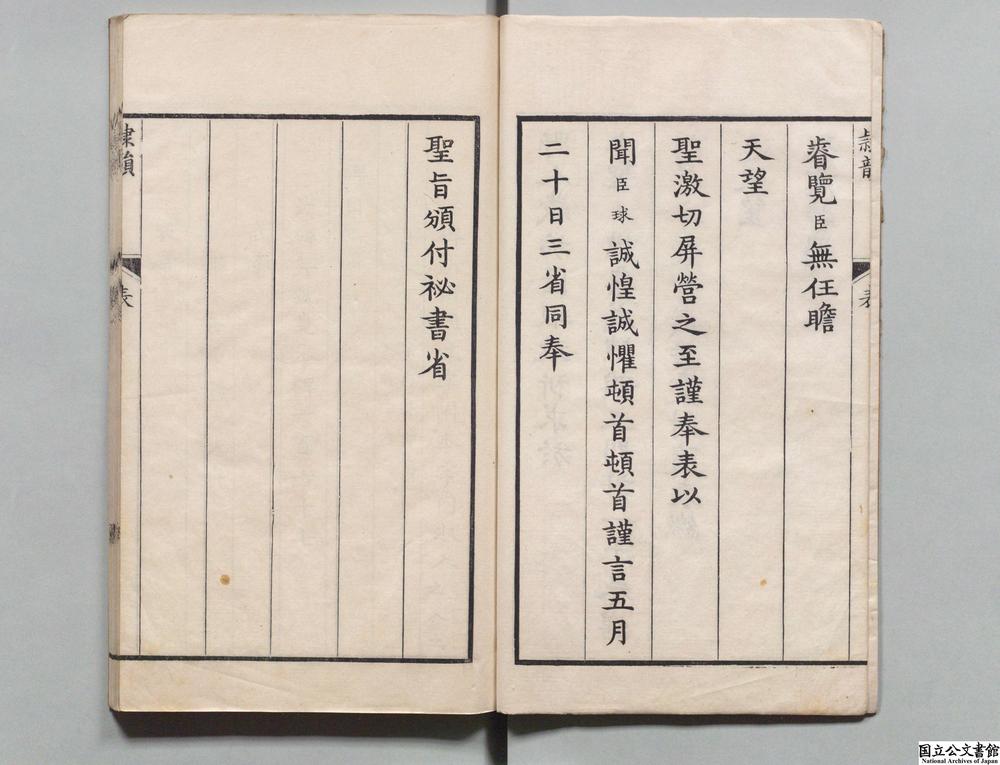 睿覽臣無任瞻
天望
聖激切屏營之至謹奉表以
聞臣球誠惶誠懼頓首頓首謹言五月
二十日三省同奉
聖旨頒付祕書省
表
国立公文書館
National Archives of Japan